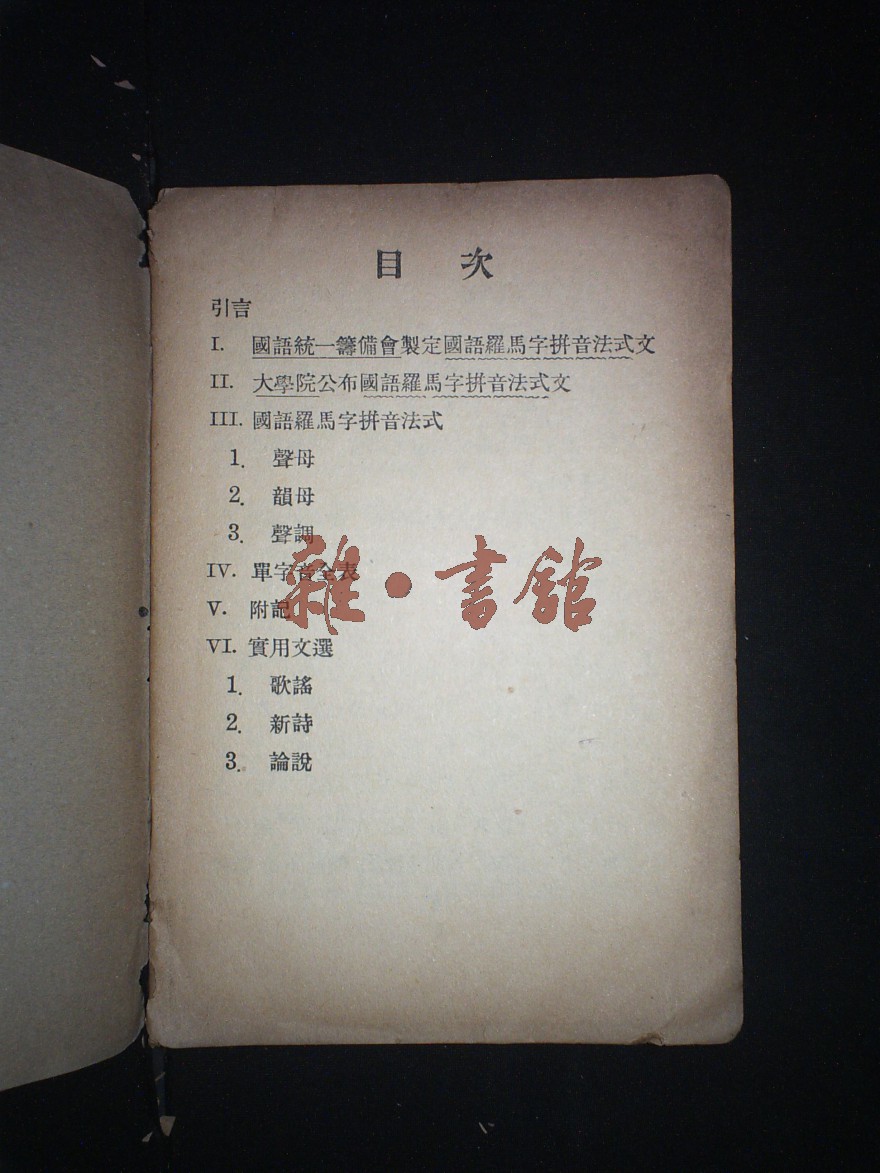 目 次
引言
I. 國語統一籌備會製定國語羅馬字拼音法式文
II. 大學院公布國語羅馬字拼音法式文
III. 國語羅馬字拼音法式
1. 聲母
2. 韻母
3. 聲調
IV. 單字音全表
V. 附記
VI. 實用文選
1. 歌謠
2. 新詩
3. 論說
雜·書館